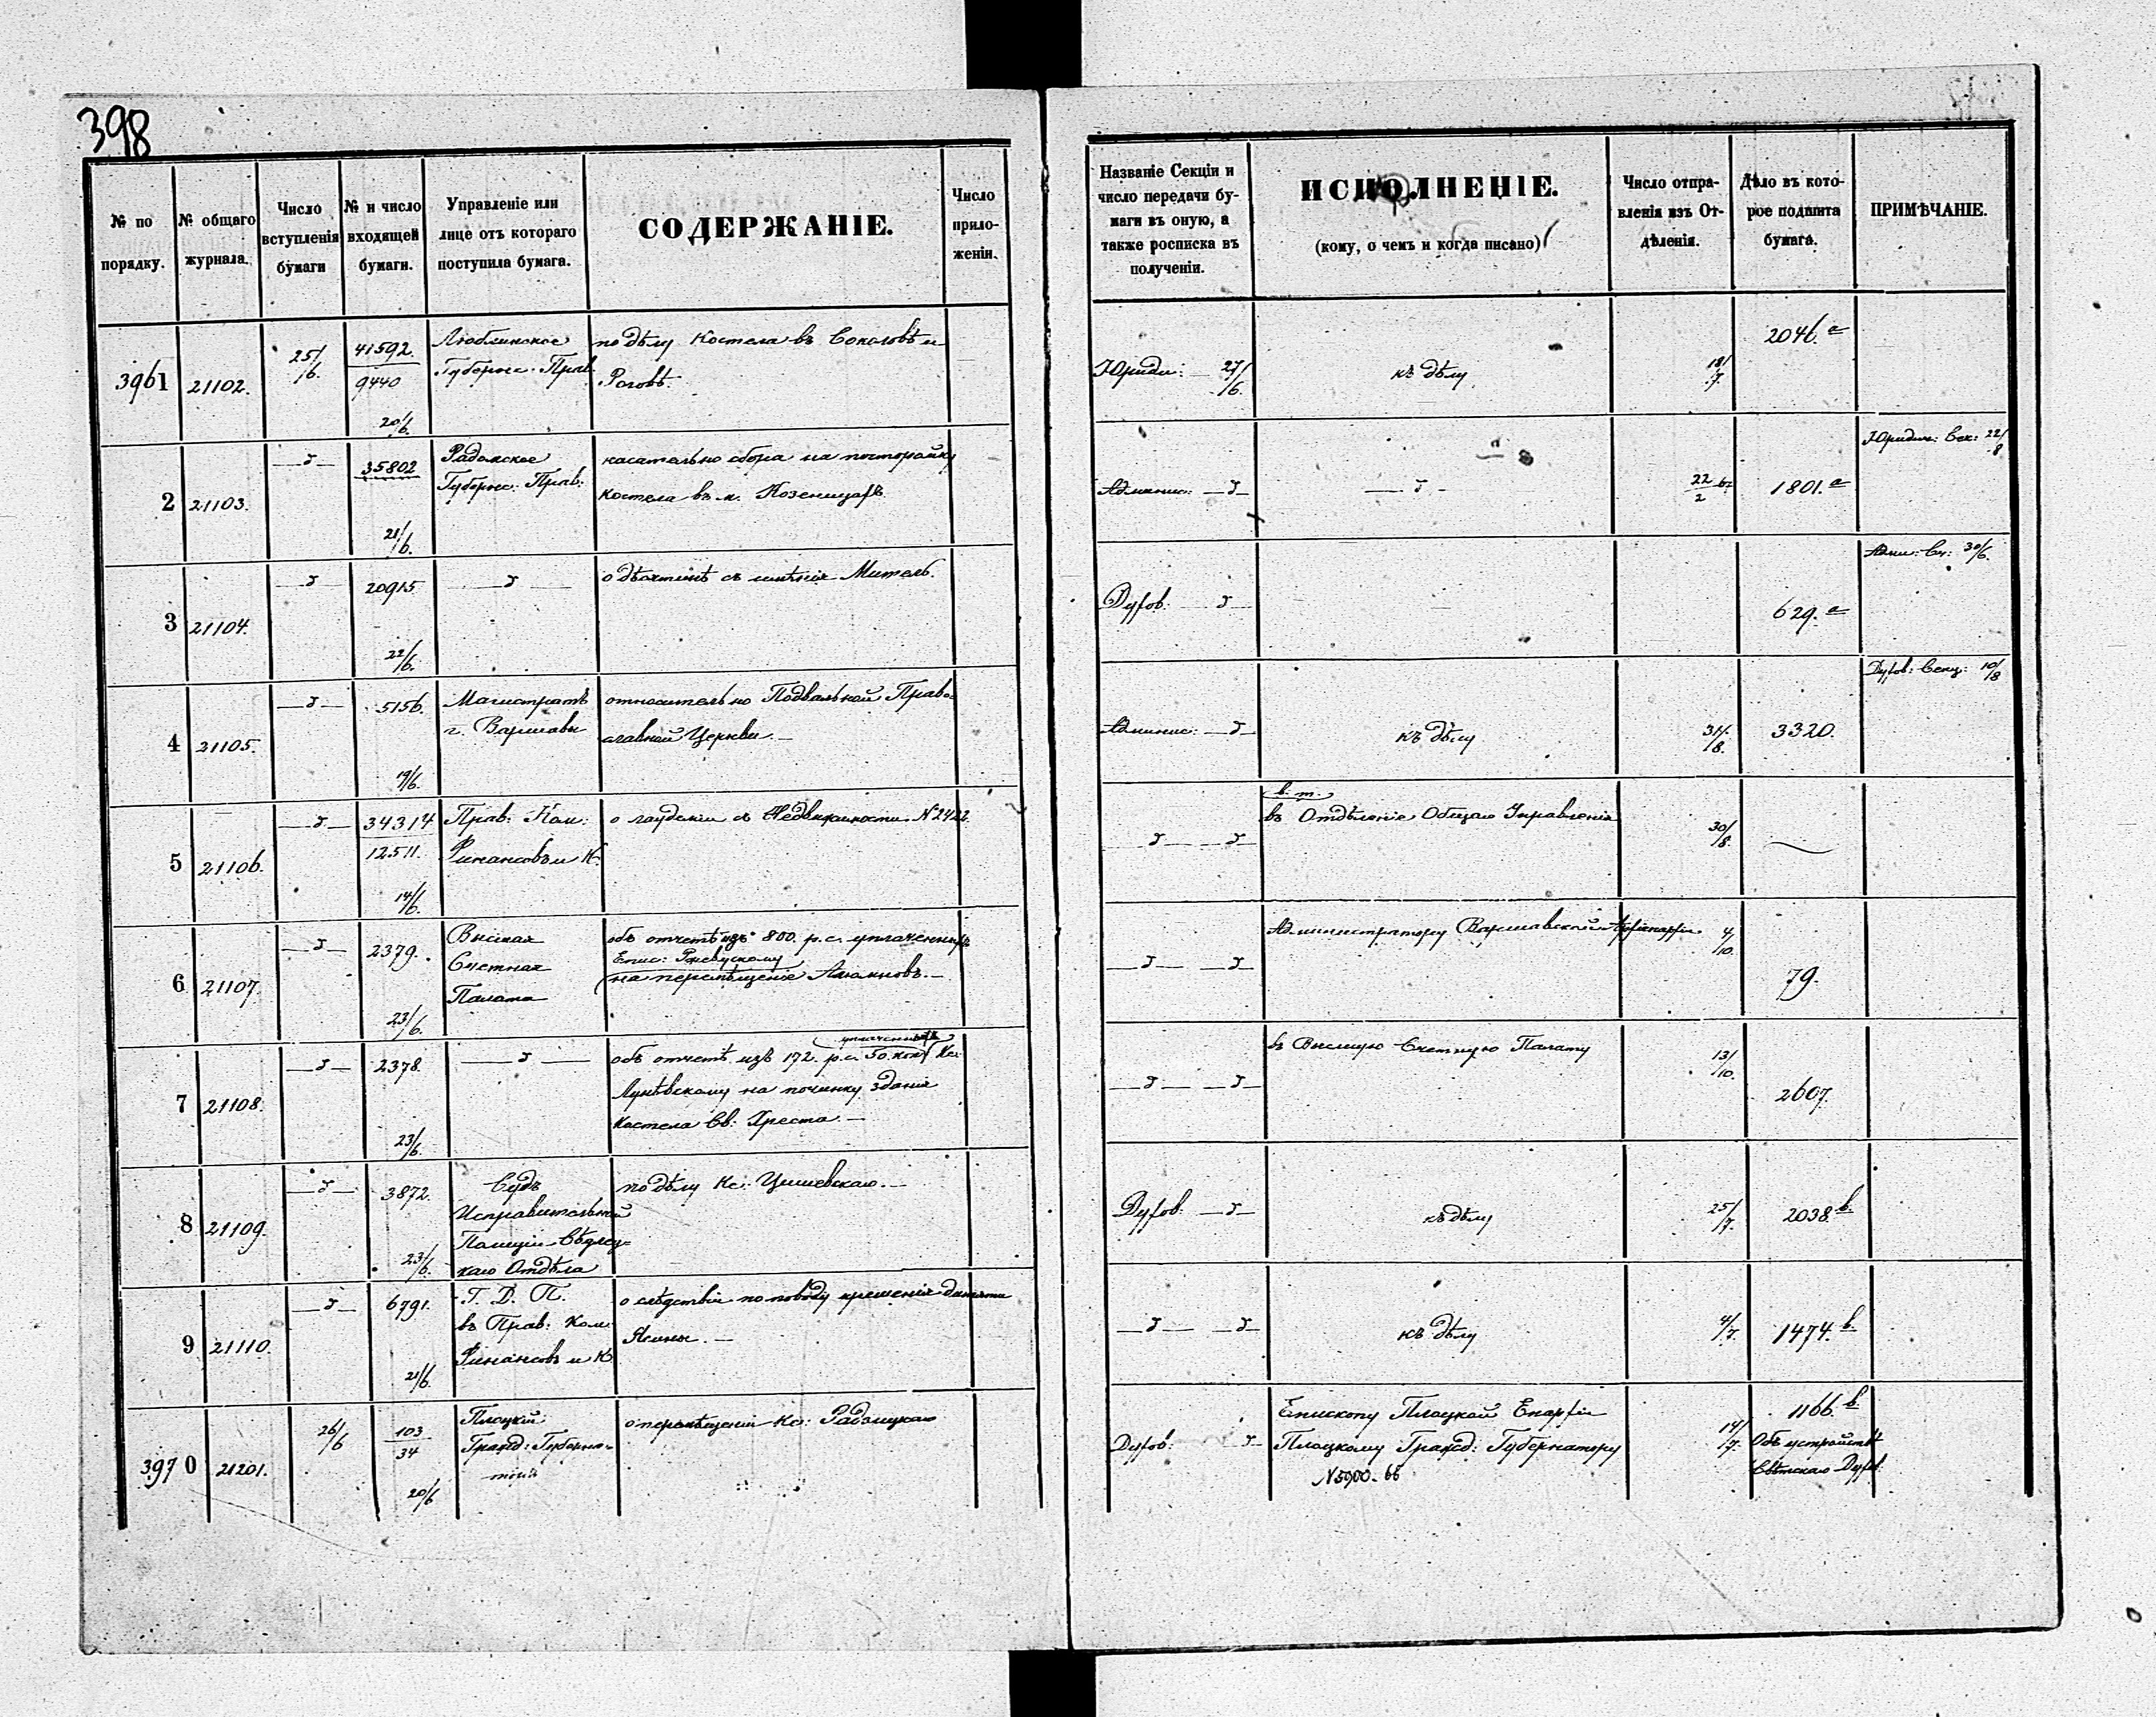 398
№ по порядку.
№ общаго журнала.
Число вступленія бумаги
№ и число входящей бумаги.
Управленіе или лице отъ котораго поступила бумага.
СОДЕРЖАНІЕ.
Число прило- женій.
Названіе Секціи и число передачи бу- маги въ оную, а также росписка въ полученіи.
ИСПОЛНЕНІЕ.
(кому, о чемъ и когда писано)
Число отпра- вленія изъ От- дѣленія.
Дѣло въ кото- рое подшита бумага.
ПРИМѢЧАНІЕ.
3961 21102. 25/6. 41592 9440 20/6.
Люблинское Губернс: Прав.
по дѣлу Костела въ Соколовѣ и
Роговѣ.
Юриди: 27/6. къ дѣлу 18/7. 2046.а
2 21103. 35802 21/6.
Радомское Губернс: Прав:
касательно сбора на постройку
костела въ м. Козеницахъ
Админис: 22/2 67 1801.а
Юридич: Сек: 22/8
3 21104. 20915 22/6.
о десятинѣ съ имѣнія Митель.
Духов: 629.а
Адми: Сек: 30/6.
4 21105. 5156. 19/6.
Магистратъ г. Варшавы
относительно Подвальной Право-
славной Церкви. —
Админис: къ дѣлу 31/8. 3320.
Духов: Секц: 10/8
5 21106. 34314 12511. 14/6.
Прав: Ком: Финансовъ и К.
о лаудеміи съ Недвижимости №2422
в. т.
въ Отдѣленіе Общаго Управленія 30/8.
6 21107. 2379. 23/6.
Высшая Счетная Палата
объ отчетѣ изъ 800. р.с. уплаченныхъ
Епис: Ржевускому
на перемѣщеніе Алюмновъ. —
Администратору Варшавской Архіепархіи 4/10. 79.
7 21108. 2378. 23/6.
уплаченныхъ
объ отчетѣ изъ 172. р.с. 50. коп. Кс:
Луневскому на починку зданія
костела Св. Креста. —
въ Высшую Счетную Палату 13/10. 2607.
8 21109. 3872. 23/6.
Судъ
Исправительной
Полиціи Сѣдлец-
каго Отдѣла
по дѣлу Кс: Цишевскаго. —
Духов: къ дѣлу 25/7. 2038.в.
9 21110. 6791. 21/6.
Г. Д. П.
въ Прав: Ком:
Финансовъ и К
о слѣдствіи по поводу крещенія дитяти
къ дѣлу 4/7. 1474.в.
3970 21201. 26/6 103 34 20/6
Плоцкій
Гражд: Губерна-
торъ
о перемѣщеніи Кс: Радомицкаго
Духов:
Епископу Плоцкой Епархіи
Плоцкому Гражд: Губернатору
№5900. 66
14/7. 1166.в.
Объ устройствѣ
Свѣтскаго Духов.